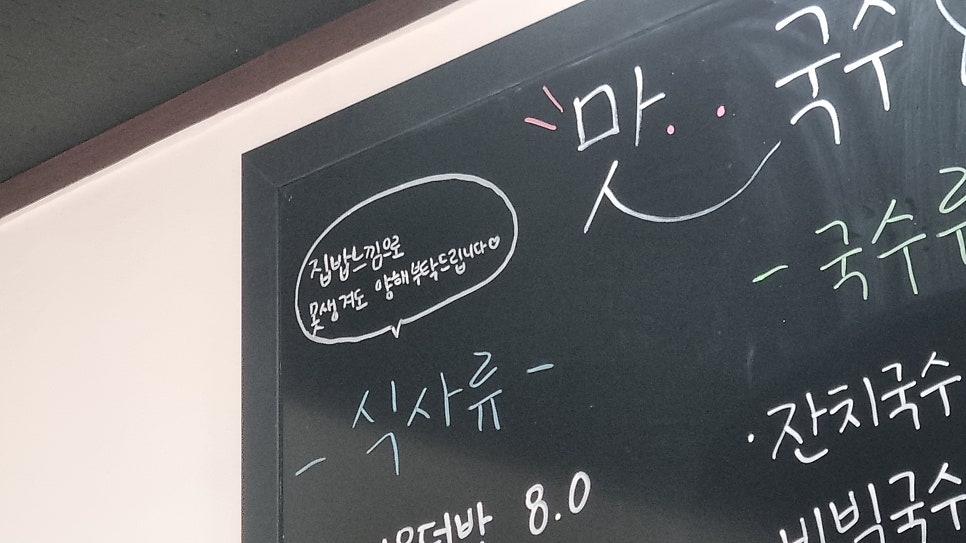 맛 국수
집밥느낌으로
못생겨도 양해부탁드립니다♡
- 식사류 -
8.0
- 국수류
· 잔치국수
비빔국수